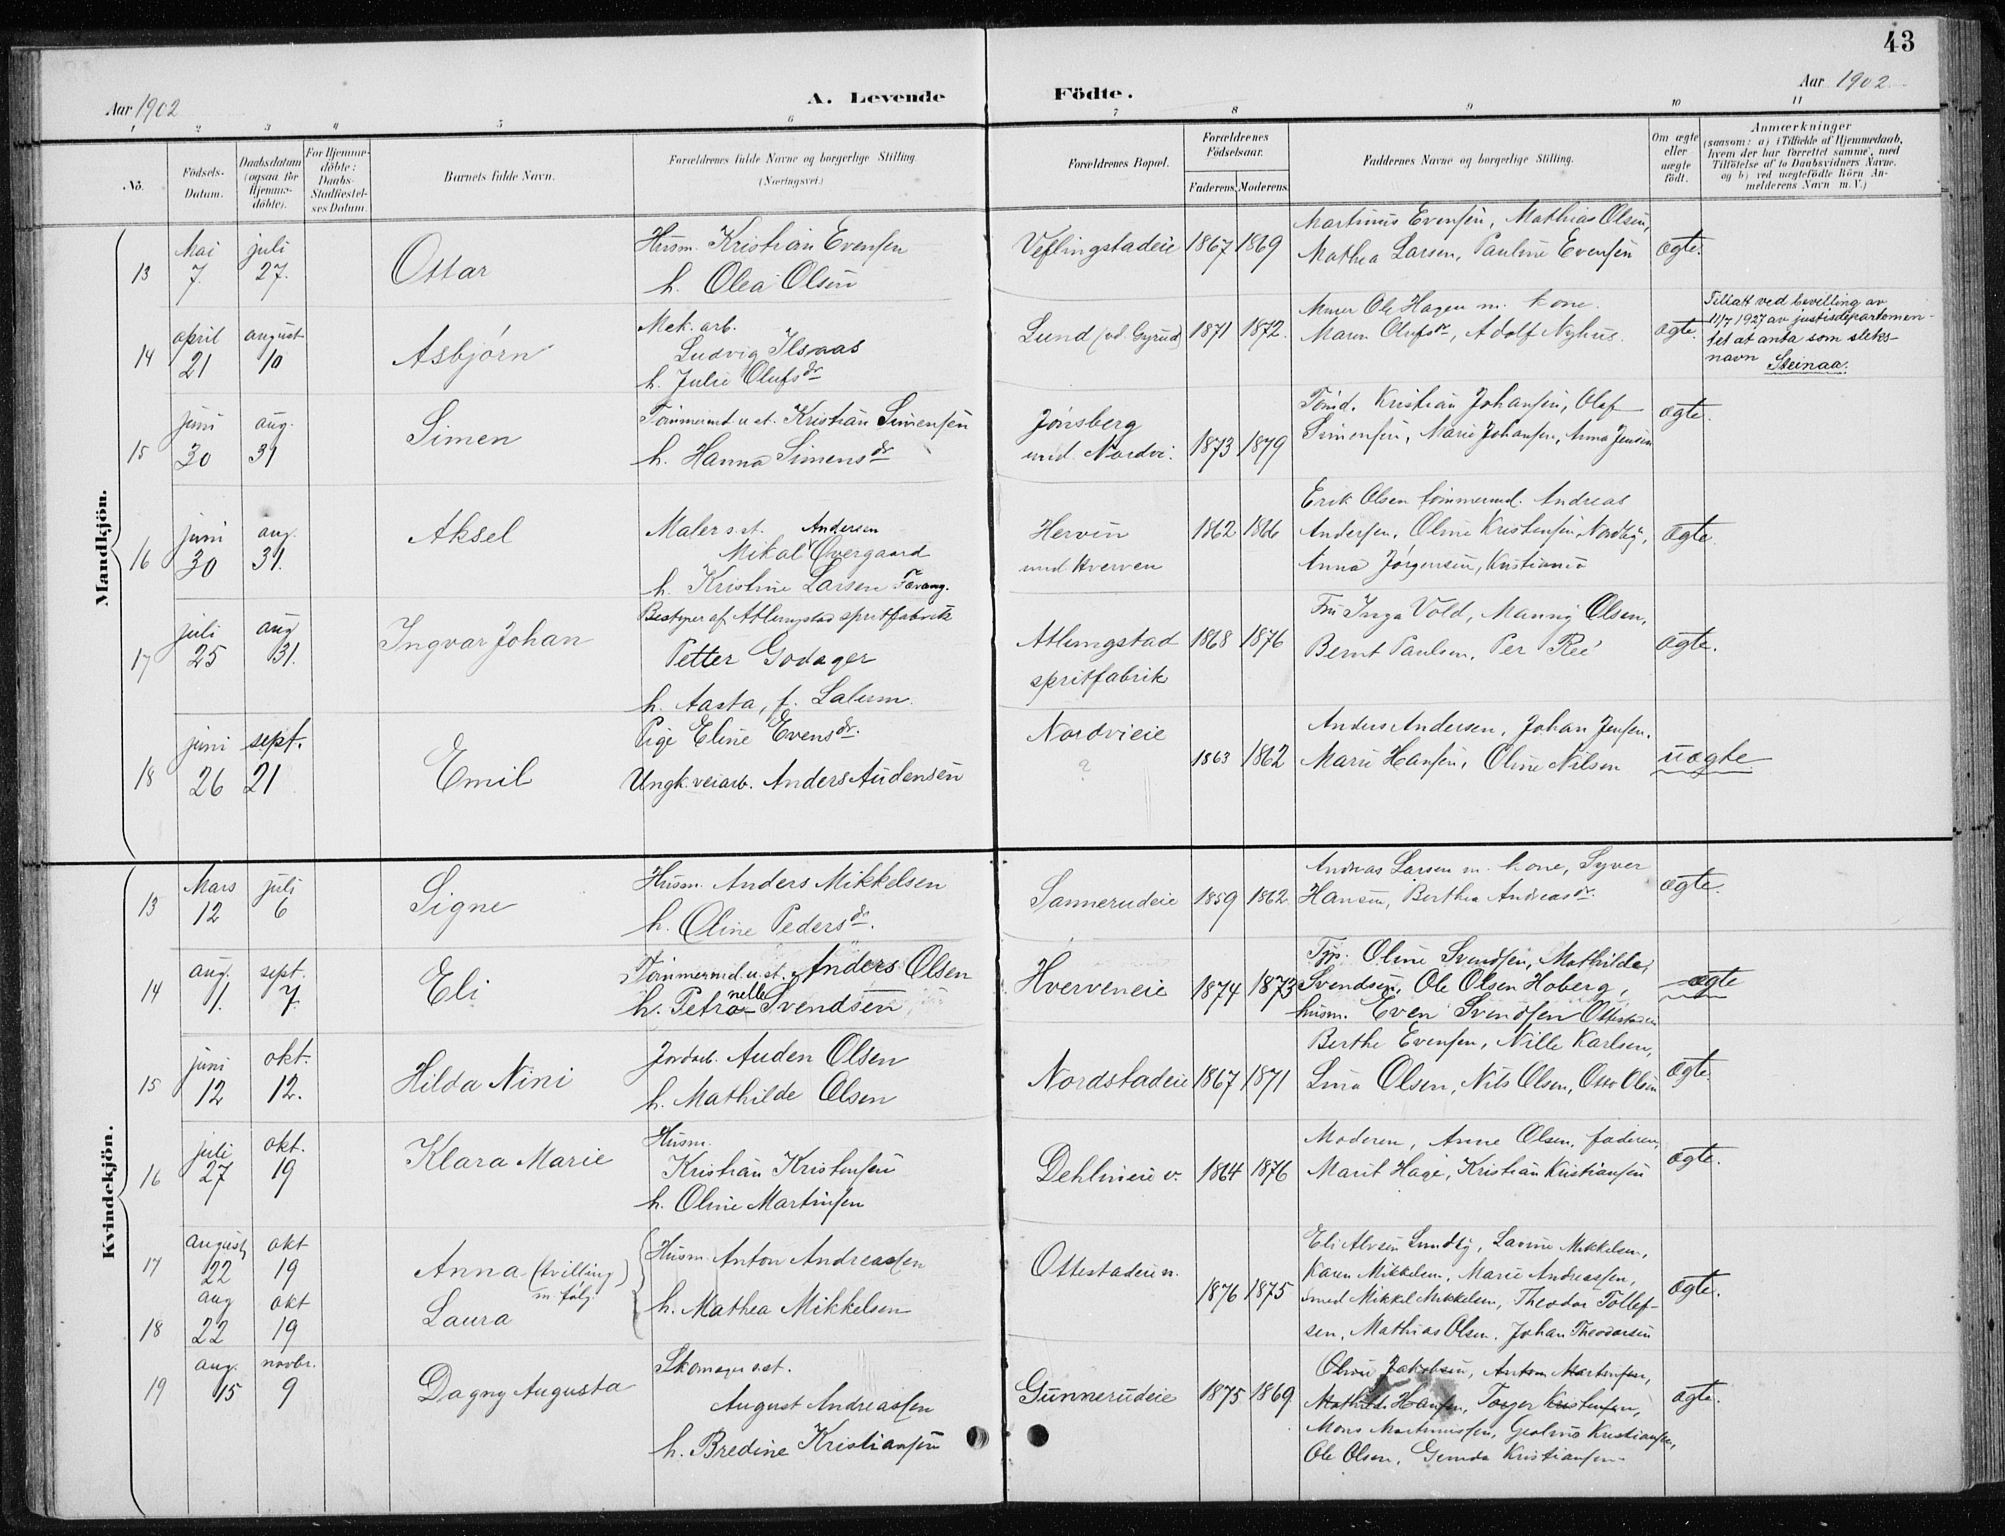 43
Aar 1902
A. Levende Födte.
Aar 1902
1 2 3 4 5 6 7 8 9 10 11
No.
Födsels-Datum.
Daabsdatum (ogsaa for Hjemmedöbte).
For Hjemmedöbte: Daabs-Stadfæstelses Datum.
Barnets fulde Navn.
Forældrenes fulde Navne og borgerlige Stilling (Næringsvei.)
Forældrenes Bopæl.
Forældrenes Födselsaar.
Faderens. Moderens.
Faddernes Navne og borgerlige Stilling.
Om ægte eller uægte födt.
Anmærkninger
(saasom: a) i Tilfælde af Hjemmedaab, hvem der har forrettet samme, med Tilföielse af to Daabsvidners Navne, og b) ved uægtefödte Börn Anmelderens Navn m. V.)
Mandkjön.
13 Mai 7. juli 27. Ottar
Husm. Kristian Evensen
h. Olea Olsen
Veflingstadeie 1867 1869
Martinus Evensen, Mathias Olsen,
Mathea Larsen, Pauline Evensen
ægte.
14 april 21 august 10 Asbjørn
Mek. arb.
Ludvig Ilsaas
h. Julie Olufsdr
Lund (vd. Gyrud) 1871 1872.
Murer Ole Hagen m. kone.
Maren Olufsdr, Adolf Nyhus.
ægte.
Tillatt ved bevilling av
11/7 1927 av justisdepartemen-
tet at anta som slekts-
navn Steinaa.
15 juni 30 aug. 31 Simen
Tømmermd. u. st. Kristian Simensen
h. Hanna Simensdr
Jønsberg
und. Nordvi. 1873 1879
Tømd. Kristian Johansen, Olaf
Simensen, Marie Johansen, Anna Jensen
ægte.
16 juni 30 aug. 31. Aksel
Maler s.st. Andersen
Mikal Overgaard
h. Kristine Larsen Favang.
Hervin
und Hverven 1862 1866
Erik Olsen tømmermd. Andreas
Andersen, Oline Kristensen Nordby,
Anna Jørgensen, Kristiania
ægte.
17 juli 25 aug 31. Ingvar Johan
Bestyrer af Atlungstad spritfabrik
Petter Godager
h. Aasta, f. Salum.
Atlungstad
spritfabrik 1868 1876
Fru Inga Vold, Manny Olsen,
Bernt Paulsen, Per Ree
ægte.
18 juni 26 sept. 21 Emil
Pige Eline Evensdr.
Ungk. veiarb. Anders Audensen
Nordvieie
? 1863 1862
Anders Andersen, Johan Jensen.
Marie Hansen, Oline Nilsen
uægte
Kvindekjön.
13 Mars 12 juli 6 Signe
Husm. Anders Mikkelsen
h. Oline Pedersdr.
Sannerudeie 1859 1862.
Andreas Larsen m. kone, Syver
Hansen, Berthea Andreasdr.
ægte.
14 aug. 1. sept. 7. Eli
Tømmermd. u. st. Anders Olsen
h. Petronelle Svendsen
Hverveneie 1874 1873
Tjp. Oline Svendsen, Mathilde
Svendsen, Ole Olsen Hoberg,
husm. Even Svendsen Ottestadeie
ægte
15 juni 12 okt. 12. Hilda Nini
Jordarb. Auden Olsen
h. Mathilde Olsen
Nordstadeie 1867 1871
Berthe Evensen, Nille Karlsen,
Lina Olsen, Nils Olsen, Otto Olsen
ægte.
16 juli 27 okt. 19 Klara Marie
Husm.
Kristian Kristensen
h. Oline Martinsen
Dehlineie v. 1864 1876
Moderen, Anne Olsen, faderen,
Marit Hage, Kristian Kristiansen
ægte.
17 august 22 okt 19 Anna (tvilling m. følg.)
18 aug 22 okt 19 Laura
Husm. Anton Andreassen
h. Mathea Mikkelsen
Ottestadeie n. 1876 1875
Eli Alvsen Sundby, Lavine Mikkelsen,
Karen Mikkelsen, Marie Andreassen,
smed Mikkel Mikkelsen, Theodor Tollef-
sen, Mathias Olsen, Johan Theodorsen
ægte.
19 aug. 15 novbr. 9 Dagny Augusta
Skomager s.st.
August Andreassen
h. Bredine Kristiansen
Gunnerudeie 1875 1869
Olivia Jakobsen, Anton Martinsen,
Mathilde Hansen, Torger Kristensen,
Mons Martinussen, Kristiansen,
Ole Olsen, Kristiansen.
ægte.